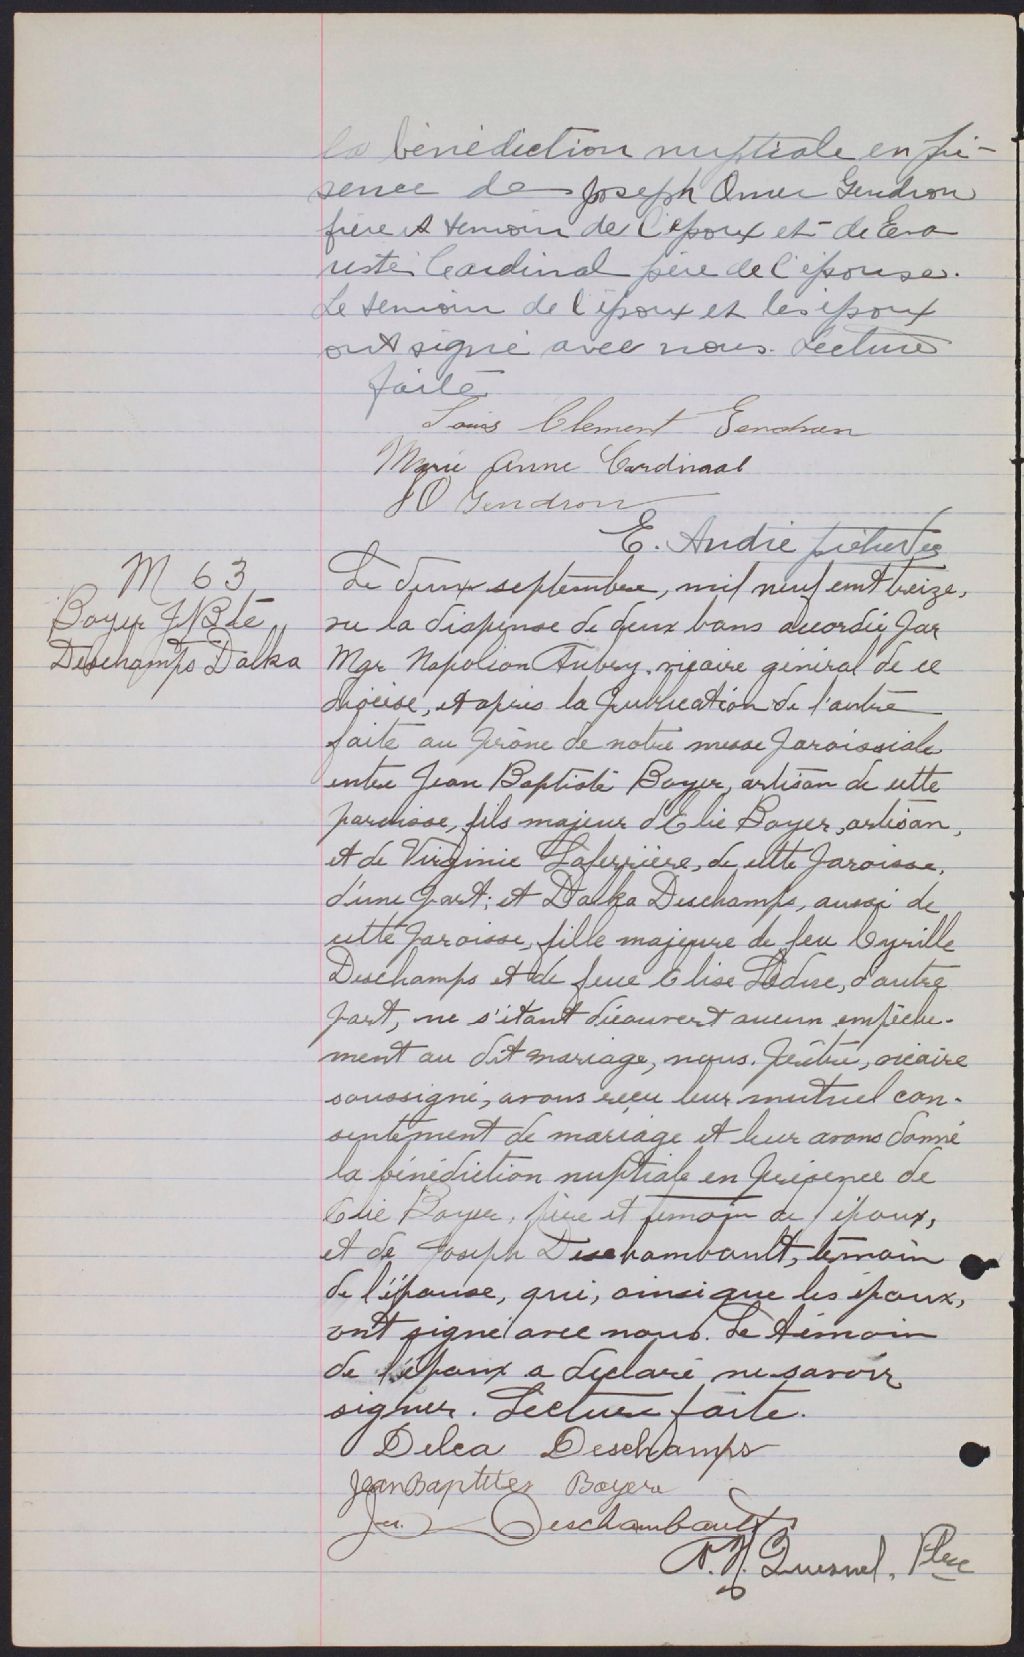 la bénédiction nuptiale en pré-
sence de Joseph Omer Gendron
frère et témoin de l'époux et de Eva
riste Cardinal père de l'épouse.
Le témoin de l'époux et les époux
ont signé avec nous. Lecture
faite
Louis Clement Gendron
Marie Anne Cardinaal
JO Gendron
E. André ptre
M 63
Boyer J/Bte
Deschamps Dalka
Le deux septembre, mil neuf cent treize,
vu la dispense de deux bans accordée par
Mgr Napoléon Aubry, vicaire général de ce
diocèse, et après la publication de l'autre
faite au prône de notre messe paroissiale
entre Jean Baptiste Boyer, artisan de cette
paroisse, fils majeur d'Elie Boyer, artisan,
et de Virginie Laferrière, de cette paroisse,
d'une part; et Dalka Deschamps, aussi de
cette paroisse, fille majeure de feu Cyrille
Deschamps et de feue Elise Leduc, d'autre
part, ne s'étant découvert aucun empêche-
ment au dit mariage, nous, prêtre, vicaire
soussigné, avons reçu leur mutuel con-
sentement de mariage et leur avons donné
la bénédiction nuptiale en présence de
Elie Boyer, père et témoin de l'époux,
et de Joseph Deschambault, témoin
de l'épouse, qui, ainsi que les époux,
ont signé avec nous. Le témoin
de l'époux a déclaré ne savoir
signer. Lecture faite.
Delca Deschamps
Jean Baptites Boyer
Jos. Deschambault
A. N. Quesnel, Ptre